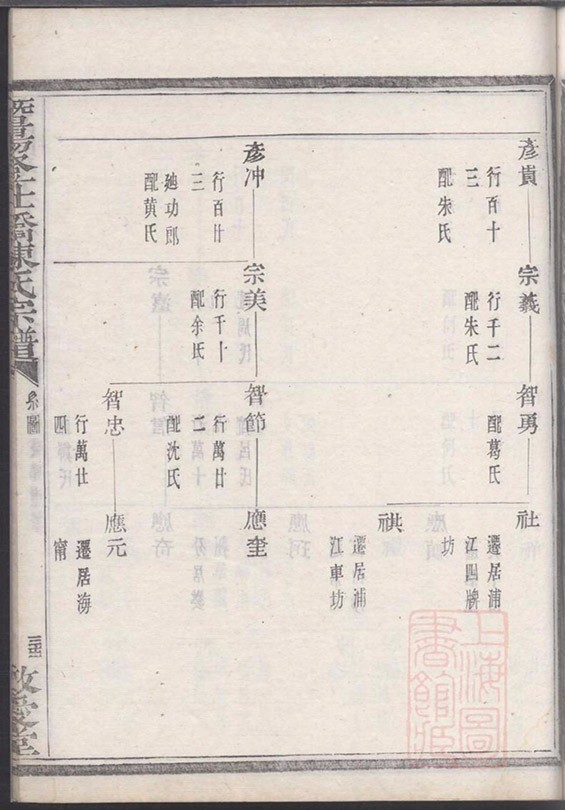 彥貴
行百十
三
配朱氏
宗義
行千二
配朱氏
智勇
配葛氏
社
遷居浦
江四牌
坊
祺
遷居浦
江車坊
彥冲
行百廿
三
廸功郎
配黄氏
宗美
行千十
配余氏
智節
行萬廿
二
配沈氏
應奎
智忠
行萬廿
四
應元
遷居海
甯
暨陽
仕橋陳氏宗譜
系圖
敬愛堂
上海圖
書館藏